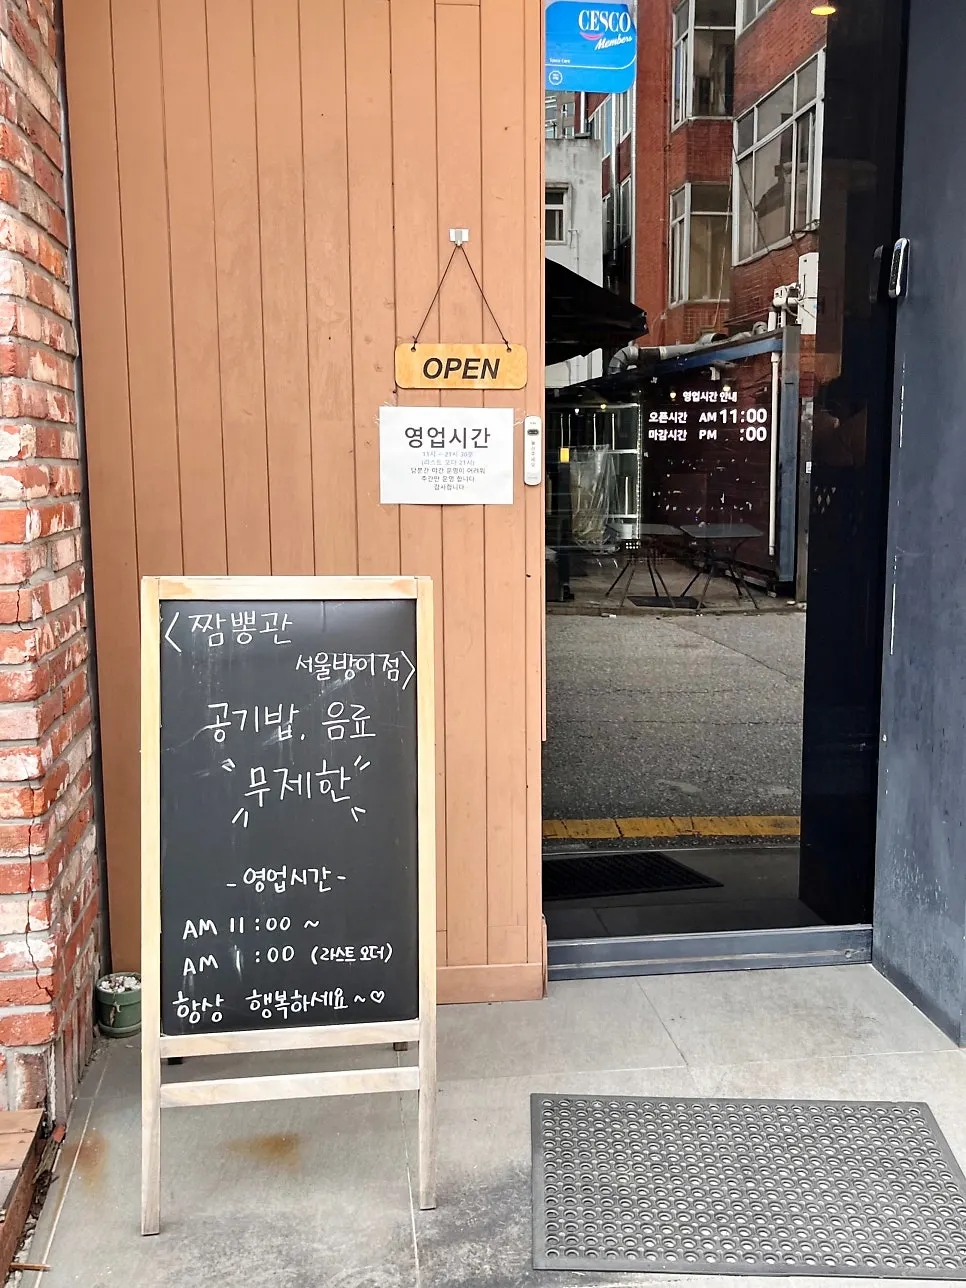 CESCO
Members
OPEN
영업시간
11시 ~ 21시 30분
(라스트 오더 21시)
당분간 야간 운영이 어려워
주간만 운영 합니다
감사합니다
영업시간 안내
오픈시간 AM 11:00
마감시간 PM :00
<짬뽕관
서울방이점>
공기밥, 음료
"무제한"
-영업시간-
AM 11:00 ~
AM 1:00 (라스트 오더)
항상 행복하세요~♡